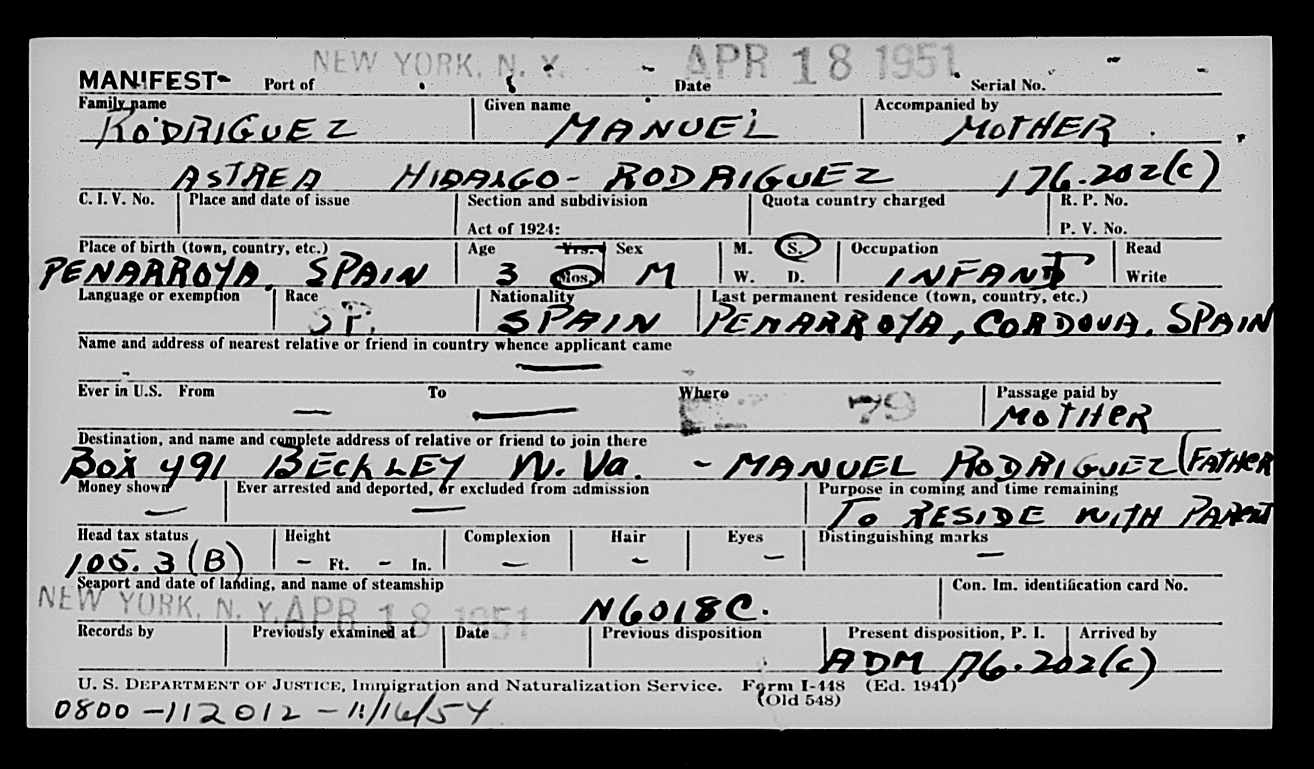 NEW YORK, N. Y. APR 18 1951
MANIFEST Port of Date Serial No.
Family name Given name Accompanied by
RODRIGUEZ MANUEL MOTHER
ASTREA HIDALGO-RODRIGUEZ 176.202(c)
C. I. V. No. Place and date of issue Section and subdivision Quota country charged R. P. No.
Act of 1924: P. V. No.
Place of birth (town, country, etc.) Age Yrs. Sex M. S. Occupation Read
PENARROYA, SPAIN 3 Mos. M W. D. INFANT Write
Language or exemption Race Nationality Last permanent residence (town, country, etc.)
SP. SPAIN PENARROYA, CORDOVA, SPAIN
Name and address of nearest relative or friend in country whence applicant came
—
Ever in U.S. From To Where Passage paid by
— — 79 MOTHER
Destination, and name and complete address of relative or friend to join there
Box 491 BECKLEY W. Va. - MANUEL RODRIGUEZ (FATHER
Money shown Ever arrested and deported, or excluded from admission Purpose in coming and time remaining
— — To RESIDE WITH PARENT
Head tax status Height Complexion Hair Eyes Distinguishing marks
105.3(B) - Ft. - In. — — — —
Seaport and date of landing, and name of steamship Con. Im. identification card No.
NEW YORK, N. Y. APR 18 1951 N6018C.
Records by Previously examined at Date Previous disposition Present disposition, P. I. Arrived by
ADM 176.202(c)
U. S. DEPARTMENT OF JUSTICE, Immigration and Naturalization Service. Form I-448 (Ed. 1941)
(Old 548)
0800-112012-11/16/54